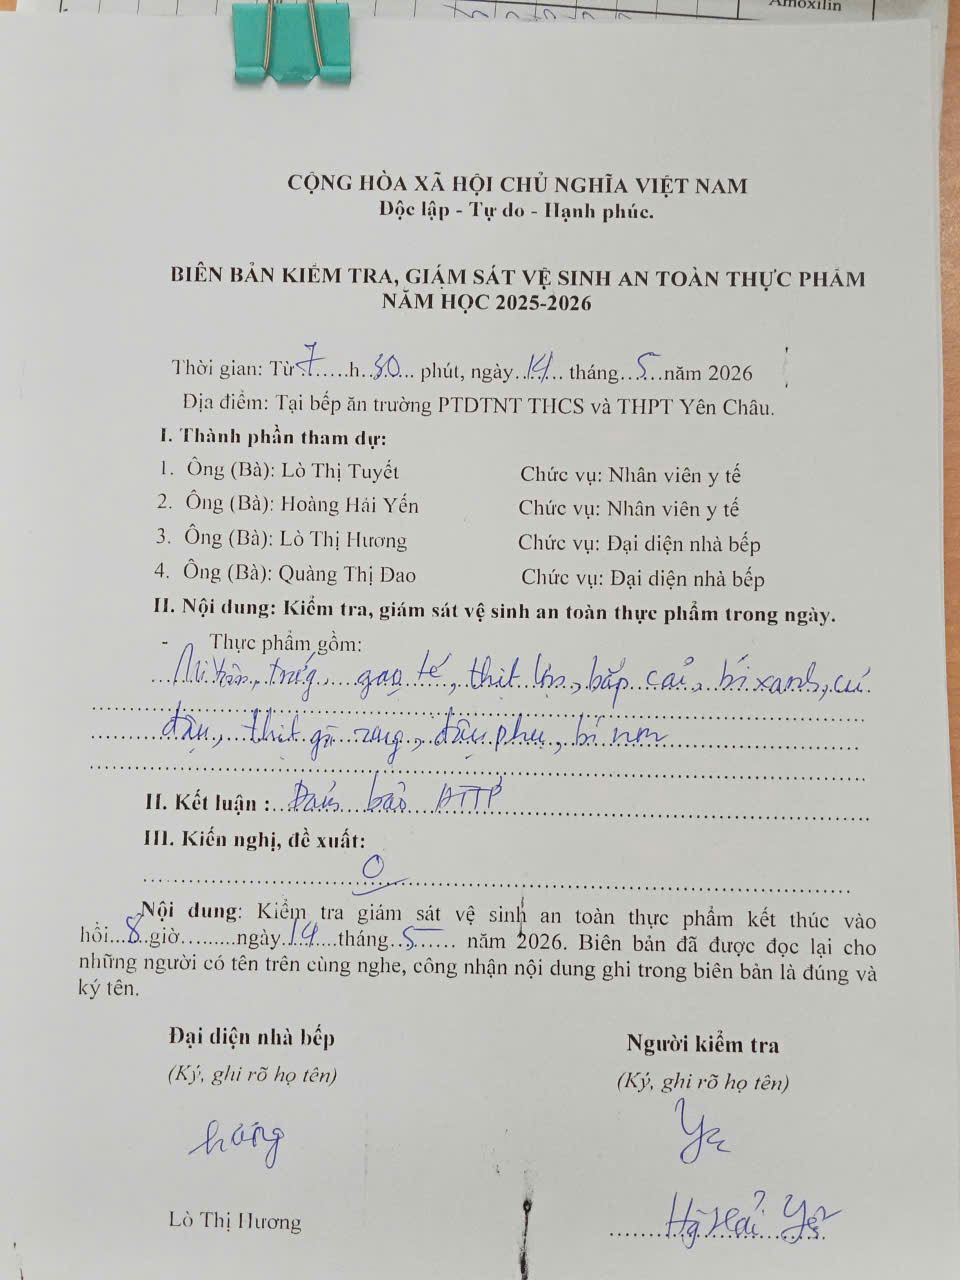 Amoxilin
CỘNG HÒA XÃ HỘI CHỦ NGHĨA VIỆT NAM
Độc lập - Tự do - Hạnh phúc.
BIÊN BẢN KIỂM TRA, GIÁM SÁT VỆ SINH AN TOÀN THỰC PHẨM
NĂM HỌC 2025-2026
Thời gian: Từ 7 h 30 phút, ngày 14 tháng 5 năm 2026
Địa điểm: Tại bếp ăn trường PTDTNT THCS và THPT Yên Châu.
I. Thành phần tham dự:
1. Ông (Bà): Lò Thị Tuyết Chức vụ: Nhân viên y tế
2. Ông (Bà): Hoàng Hải Yến Chức vụ: Nhân viên y tế
3. Ông (Bà): Lò Thị Hương Chức vụ: Đại diện nhà bếp
4. Ông (Bà): Quàng Thị Đao Chức vụ: Đại diện nhà bếp
II. Nội dung: Kiểm tra, giám sát vệ sinh an toàn thực phẩm trong ngày.
- Thực phẩm gồm:
Mì tôm, trứng, gạo tẻ, thịt lợn, bắp cải, bí xanh, củ
đậu, thịt gà rang, đậu phụ, bí nơn
II. Kết luận : Đảm bảo ATTP
III. Kiến nghị, đề xuất:
0
Nội dung: Kiểm tra giám sát vệ sinh an toàn thực phẩm kết thúc vào
hồi 8 giờ ngày 14 tháng 5 năm 2026. Biên bản đã được đọc lại cho
những người có tên trên cùng nghe, công nhận nội dung ghi trong biên bản là đúng và
ký tên.
Đại diện nhà bếp Người kiểm tra
(Ký, ghi rõ họ tên) (Ký, ghi rõ họ tên)
hương
Lò Thị Hương Hg Hải Yến